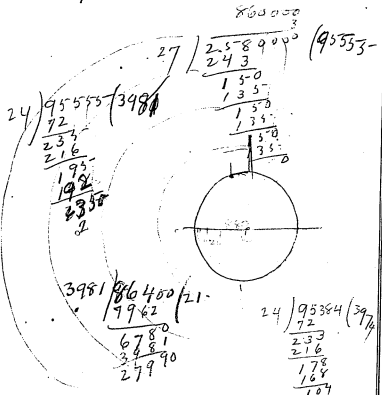 860000
3
27 ) 2589000 ( 95555-
243
150
135-
150
135-
150
135
0
24 ) 95555 ( 398
72
235-
216
195-
192
2350
2
3981 ) 86400 ( 21-
7962
6780
3981
27990
24 ) 95384 ( 397
72
233
216
178
168
104